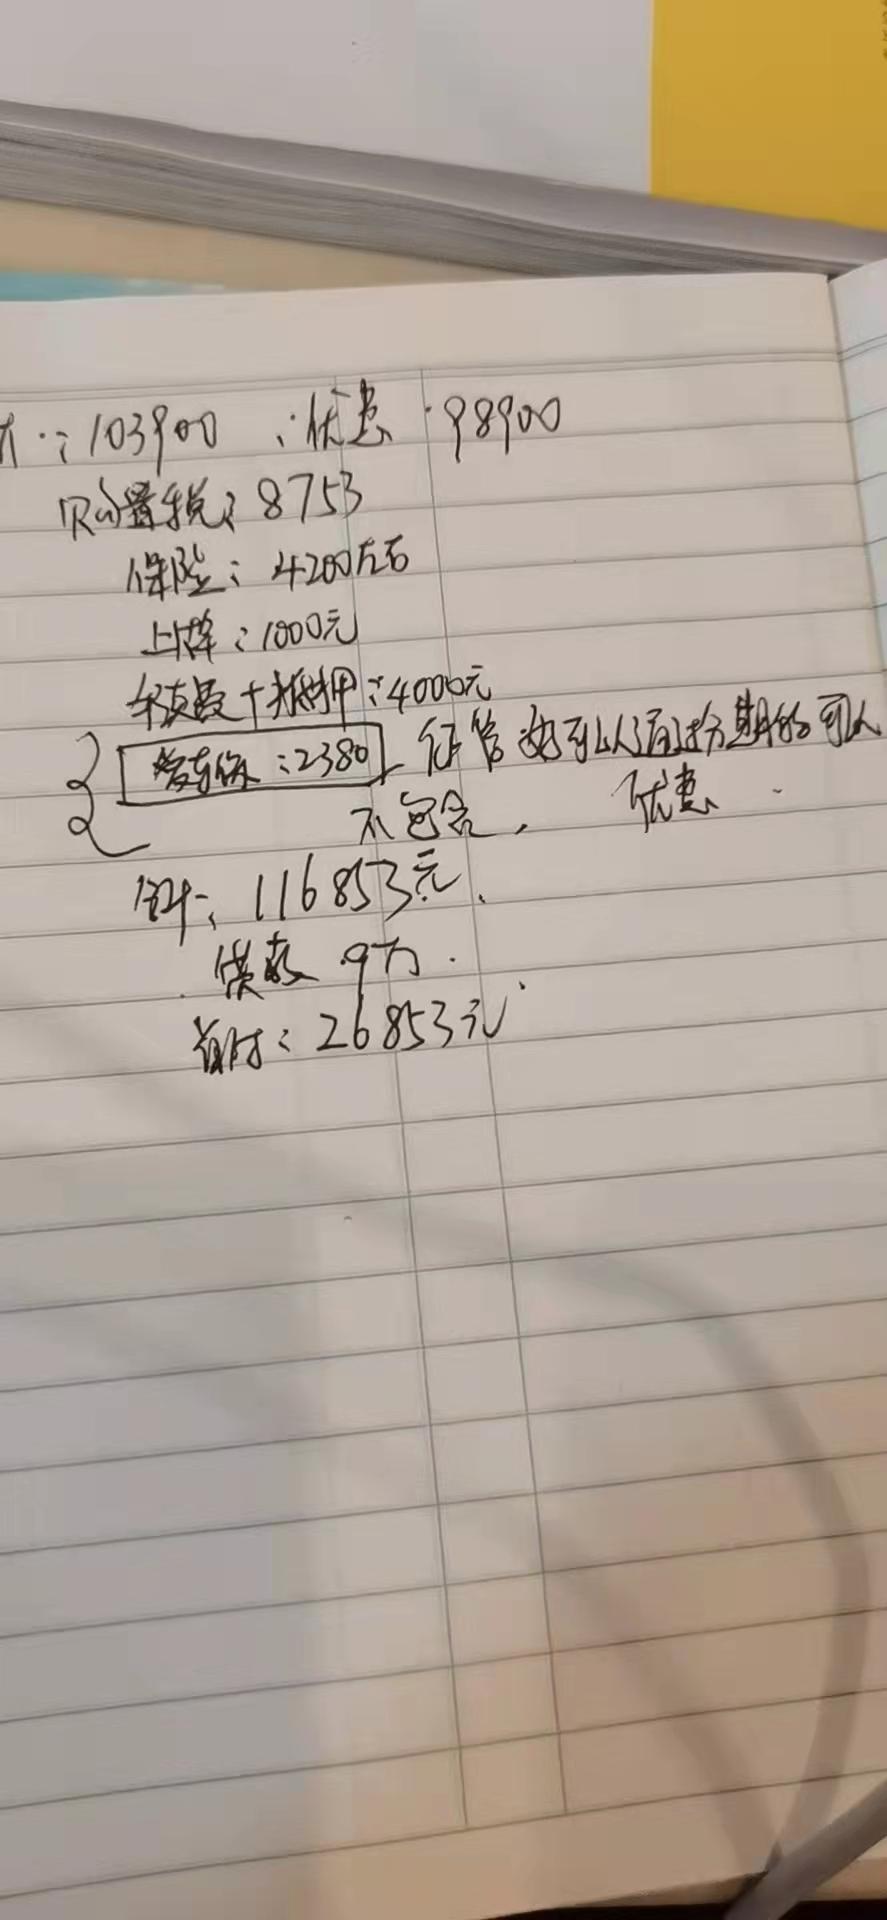 :103900 :优惠:98900
购置税:8753
保险:4200左右
上牌:1000元
手续费+抵押:4000元
:2380 可以 分期的可以
不包含, 优惠.
合计:116853元.
贷款 9万.
首付:26853元